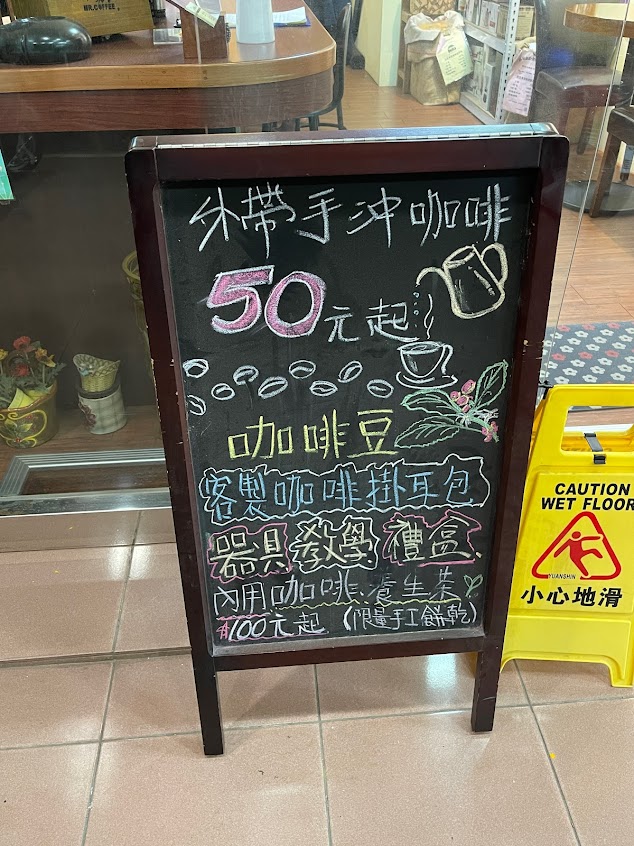 MR.COFFEE
外帶手冲咖啡
50元起
咖啡豆
客製咖啡掛耳包
器具 教學 禮盒、
內用咖啡、養生茶
$100元起 (限量手工餅乾)
CAUTION
WET FLOOR
YUANSHIN
小心地滑